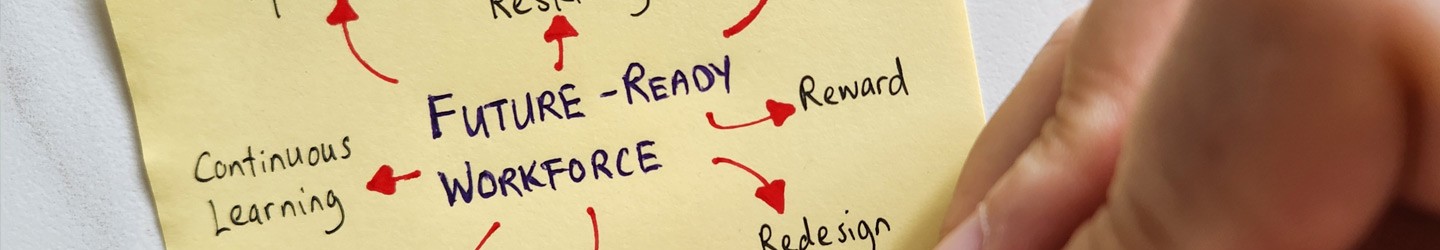 FUTURE-READY
WORKFORCE
Reward
Continuous
Learning
Redesign